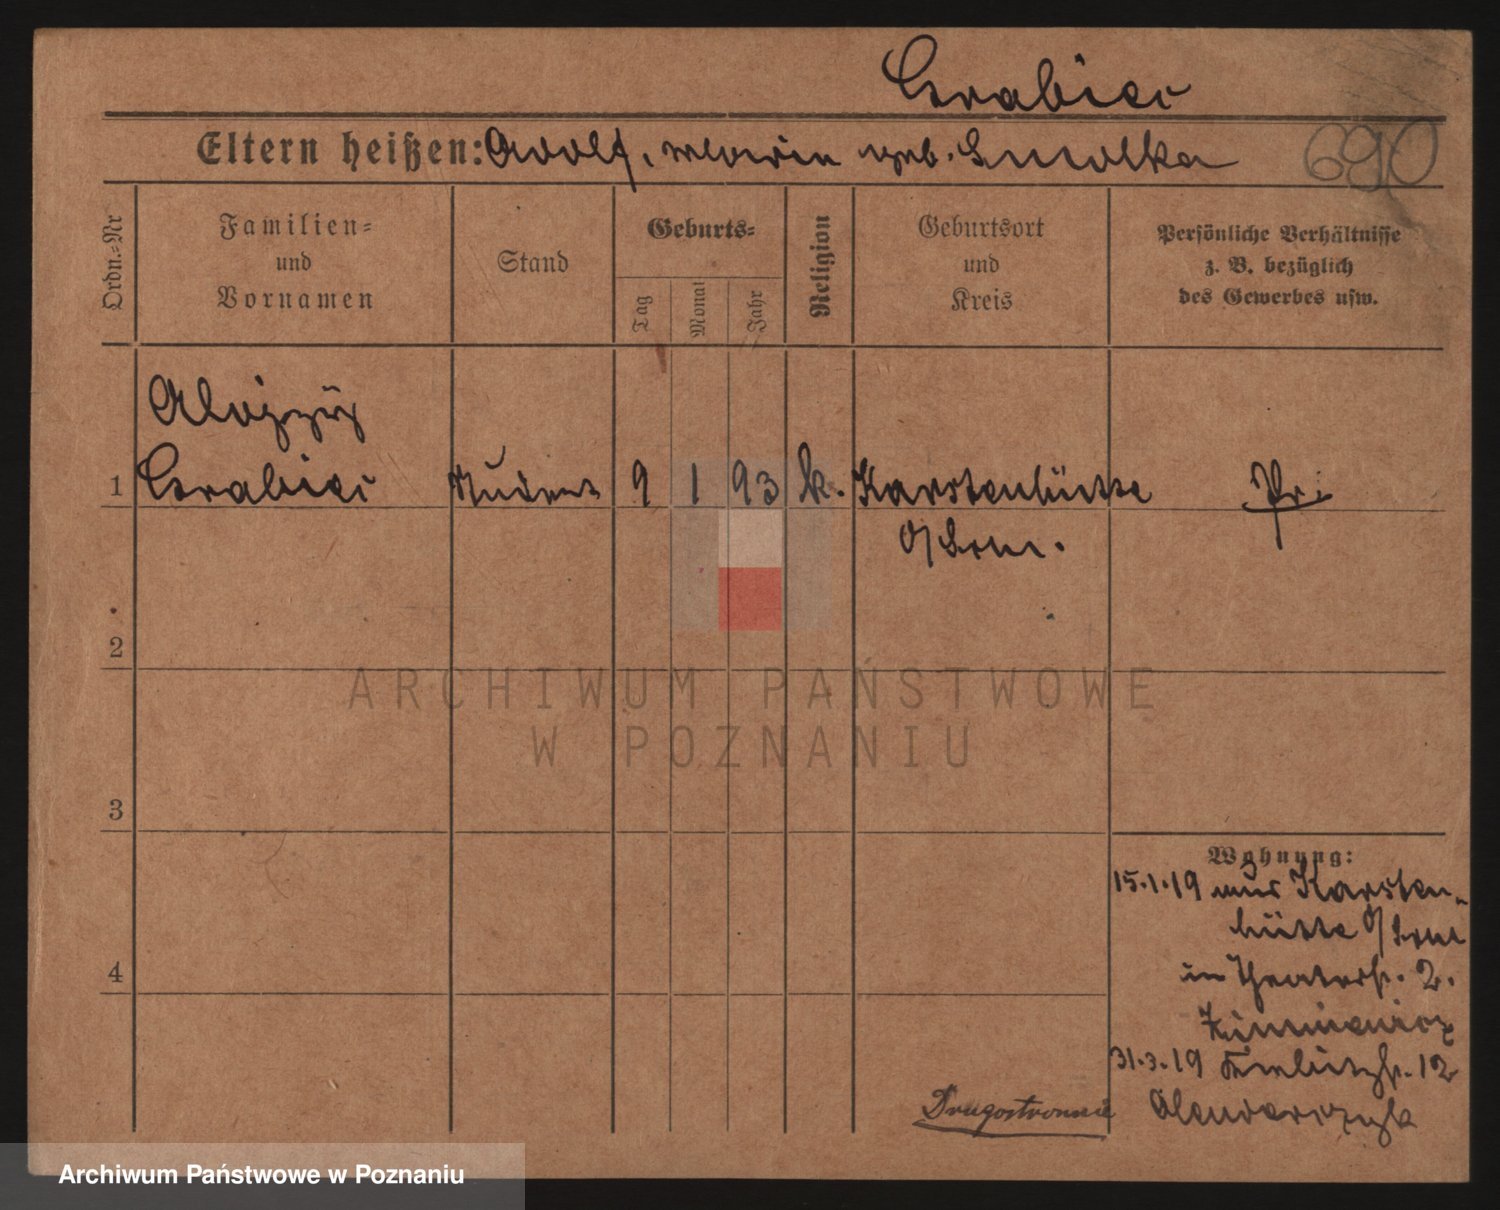 Grabiec
Eltern heißen: Adolf, Maria geb. Smolka
690
Ordn.=Nr
Familien=
und
Vornamen
Stand
Geburts=
Tag
Monat
Jahr
Religion
Geburtsort
und
Kreis
Persönliche Verhältnisse
z. B. bezüglich
des Gewerbes usw.
Alojzy
1 Student 9 1 93 k. Karstenhütte
O/Schl.
2
3
4
Wohnung:
15.1.19 aus Karsten-
hütte
in Theaterstr. 2.
31.3.19 12
Drugostronnie
ARCHIWUM PAŃSTWOWE
W POZNANIU
Archiwum Państwowe w Poznaniu